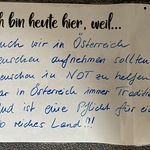 ch bin heute hier, weil...
uch wir in Österreich
enschen aufnehmen sollten
enschen in NOT zu helfen
ar in Österreich immer Traditi
nd ist eine Pflicht für ei
o reiches Land!!!